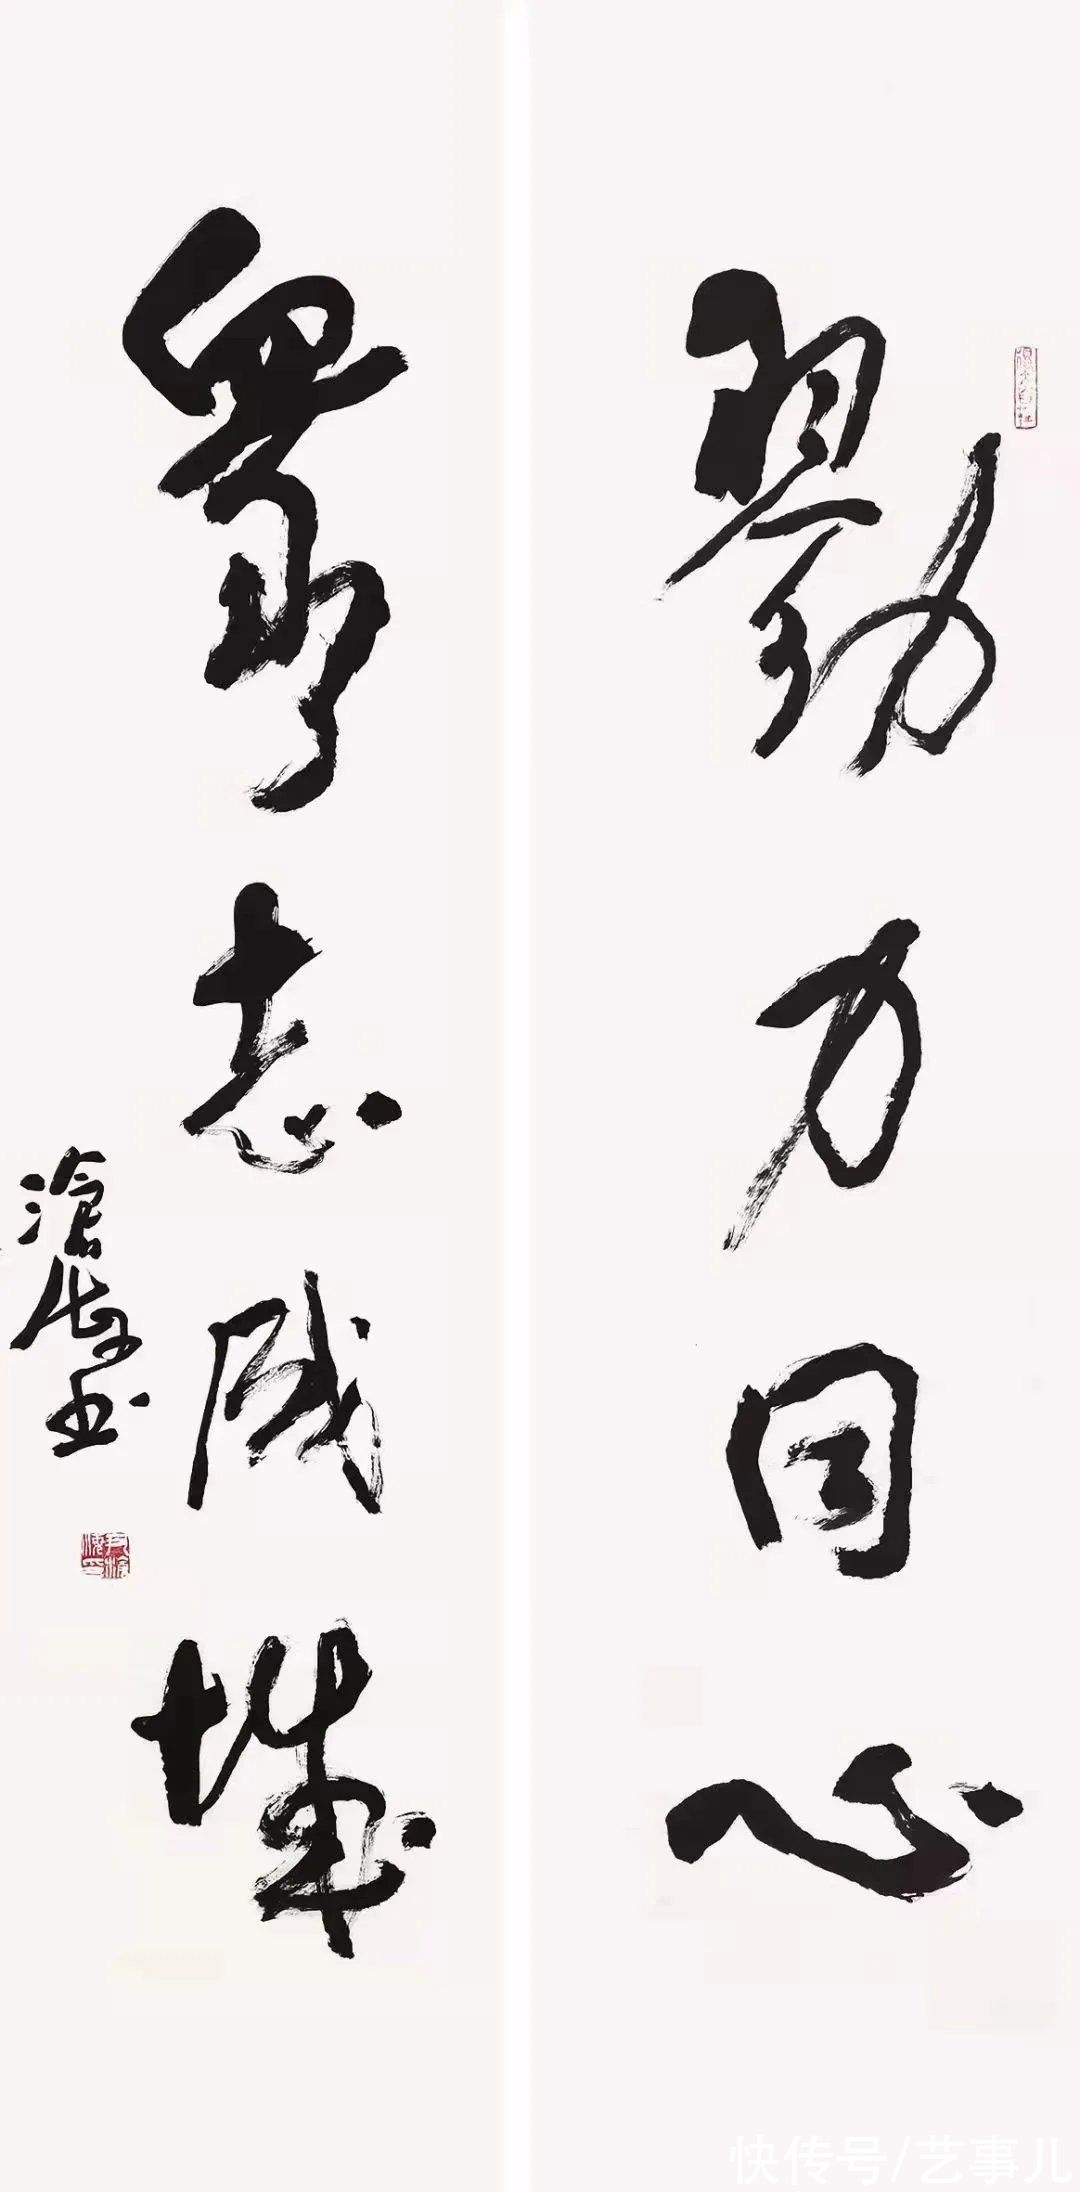 勠力同心
衆志成城
滄海书
快传号/艺事儿